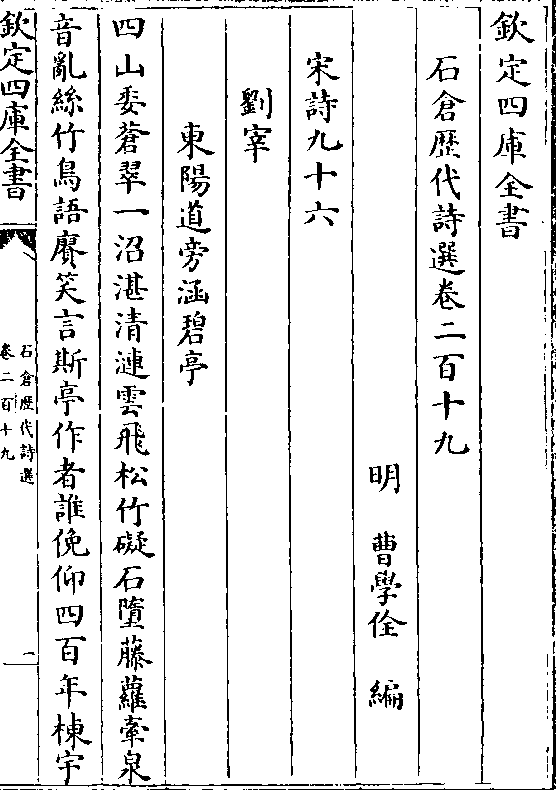 欽定四庫全書
石倉歴代詩選卷二百十九
明　曹學佺　編
宋詩九十六
劉宰
東陽道旁涵碧亭
四山委蒼翠一沼湛清漣雲飛松竹礙石墮藤蘿牽泉
音亂絲竹鳥語賡笑言斯亭作者誰俛仰四百年棟宇
欽定四庫全書
石倉歴代詩選
卷二百十九
一